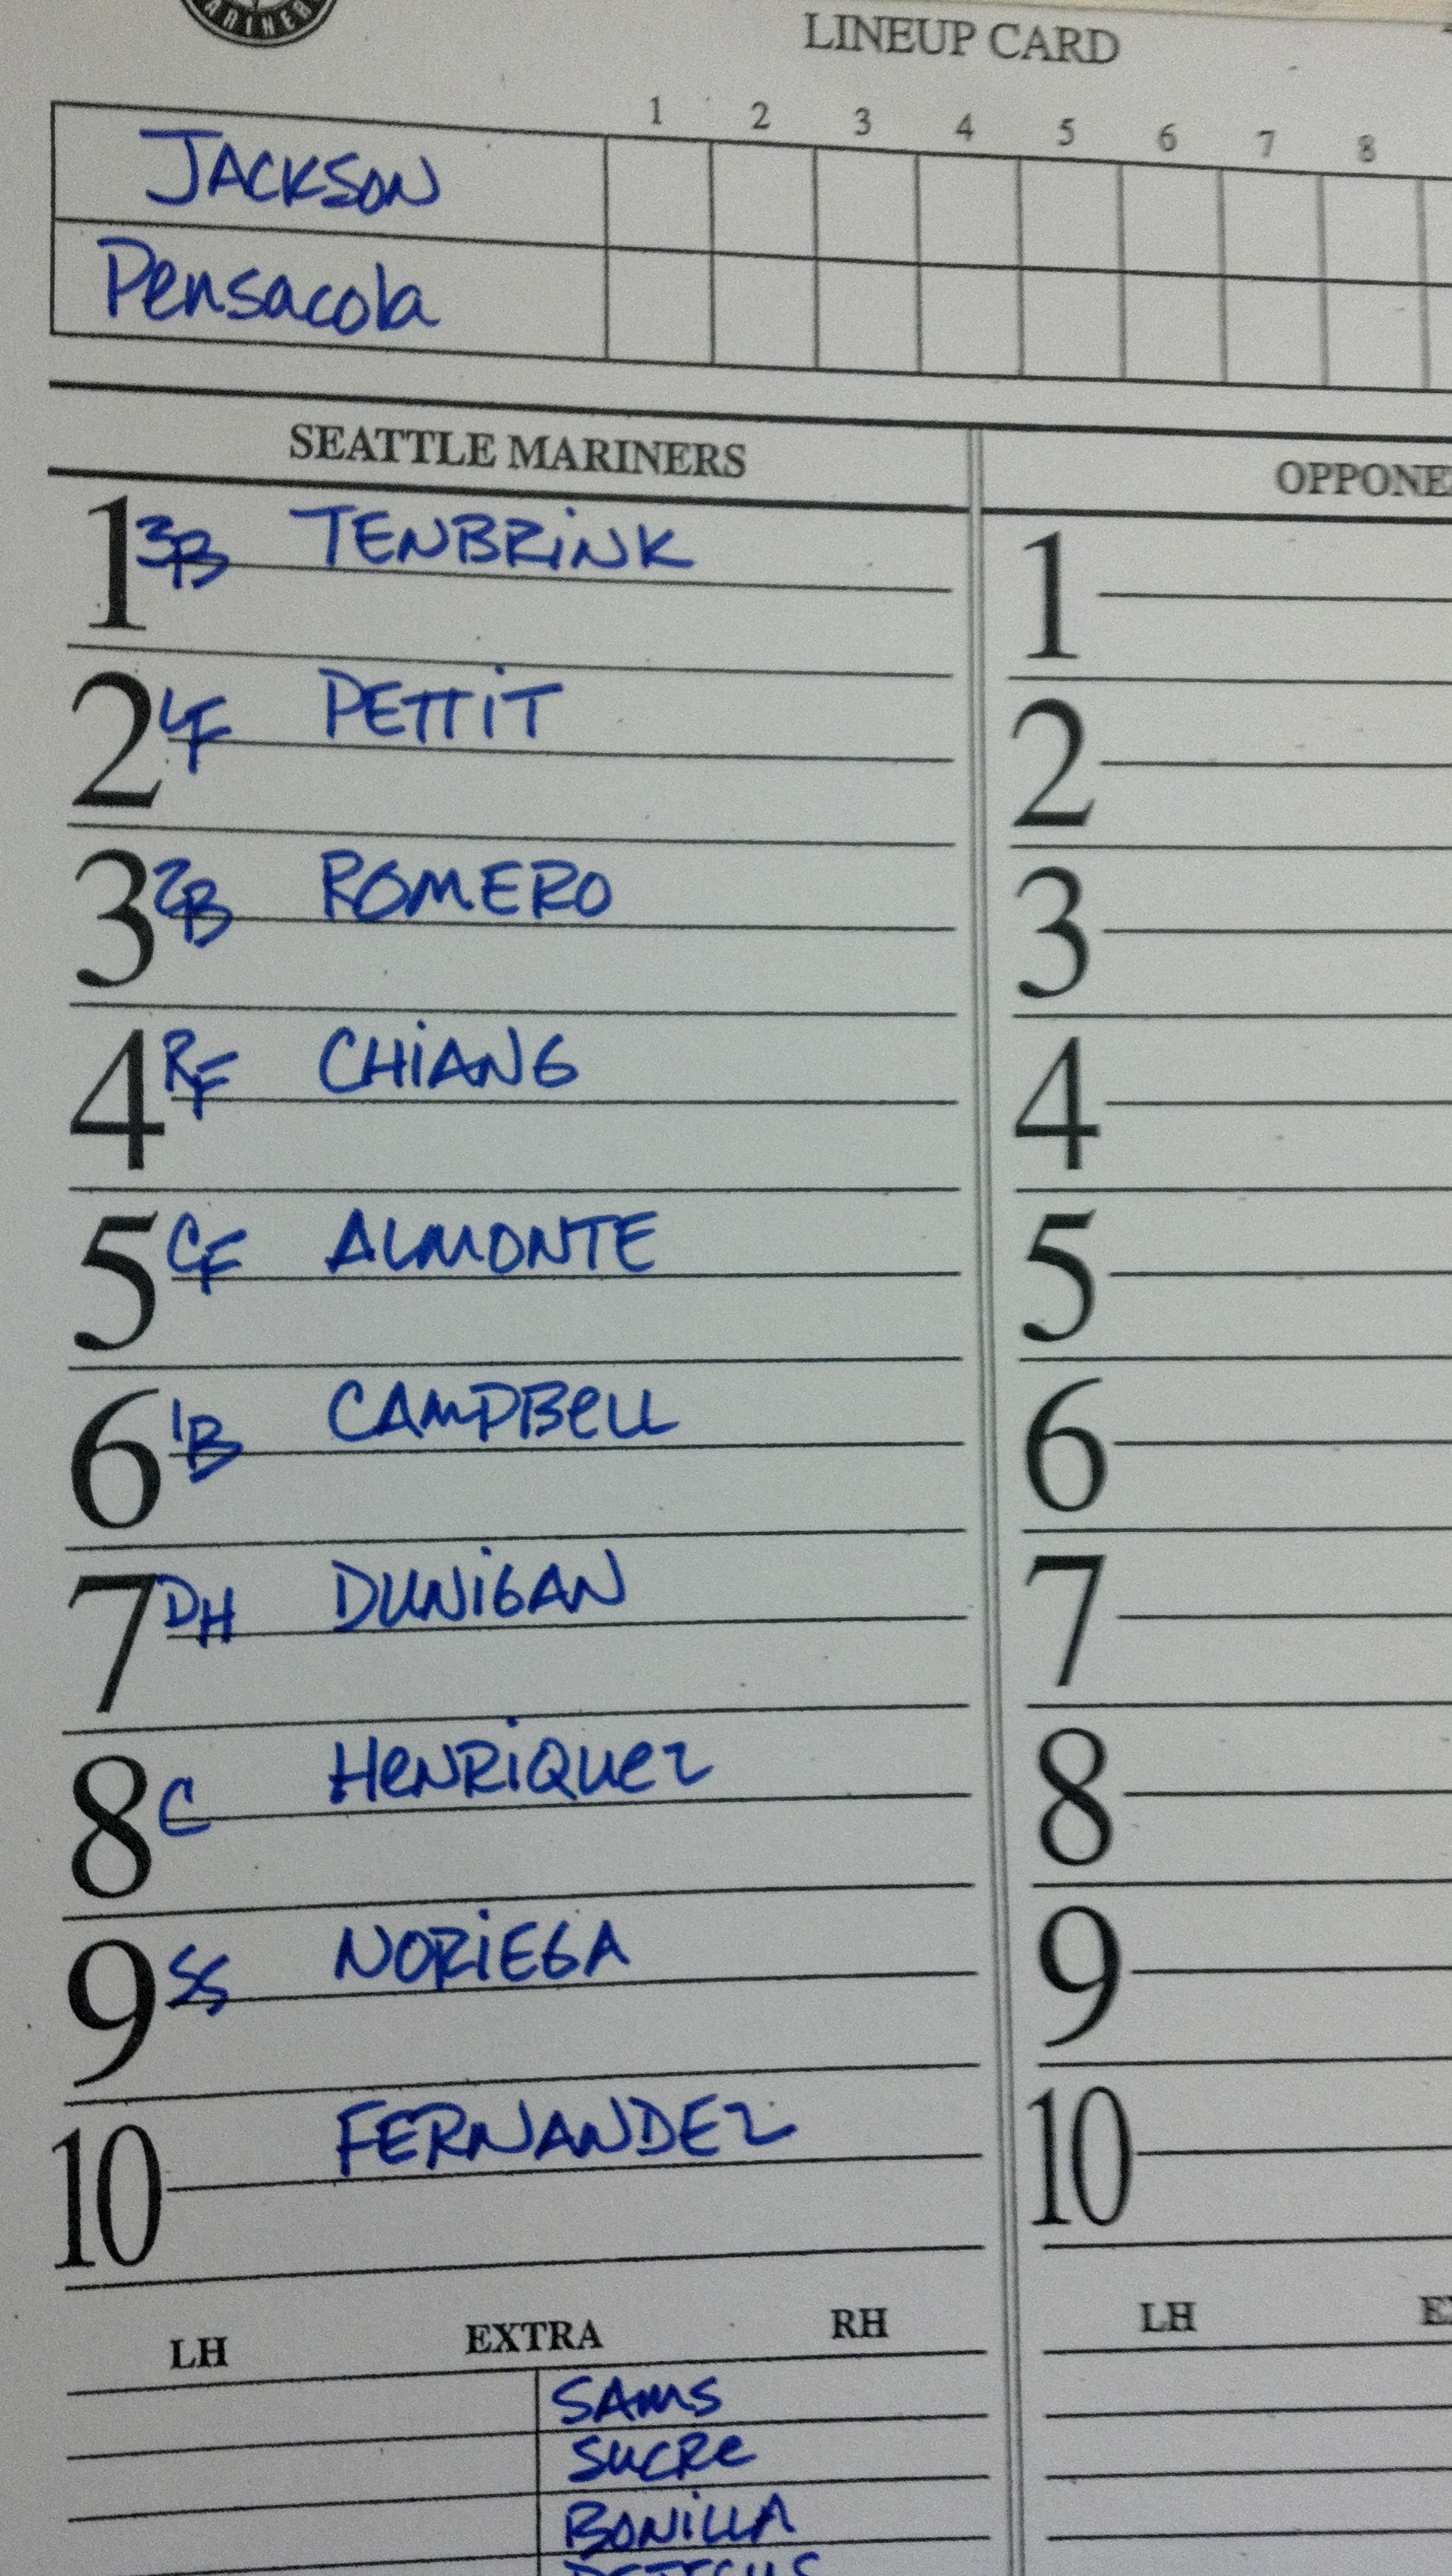 MARINERS
LINEUP CARD
1 2 3 4 5 6 7 8
JACKSON
Pensacola
SEATTLE MARINERS
1 3B TENBRiNK
2 LF PETTiT
3 2B ROMERO
4 RF CHiANG
5 CF ALMONTE
6 1B CAMPBell
7 DH DUNiGAN
8 C HeNRiQuez
9 SS NORiEGA
10 FERNANDEZ
LH EXTRA RH
SAMS
SUCRe
BONiLLA
1
2
3
4
5
6
7
8
9
10
LH